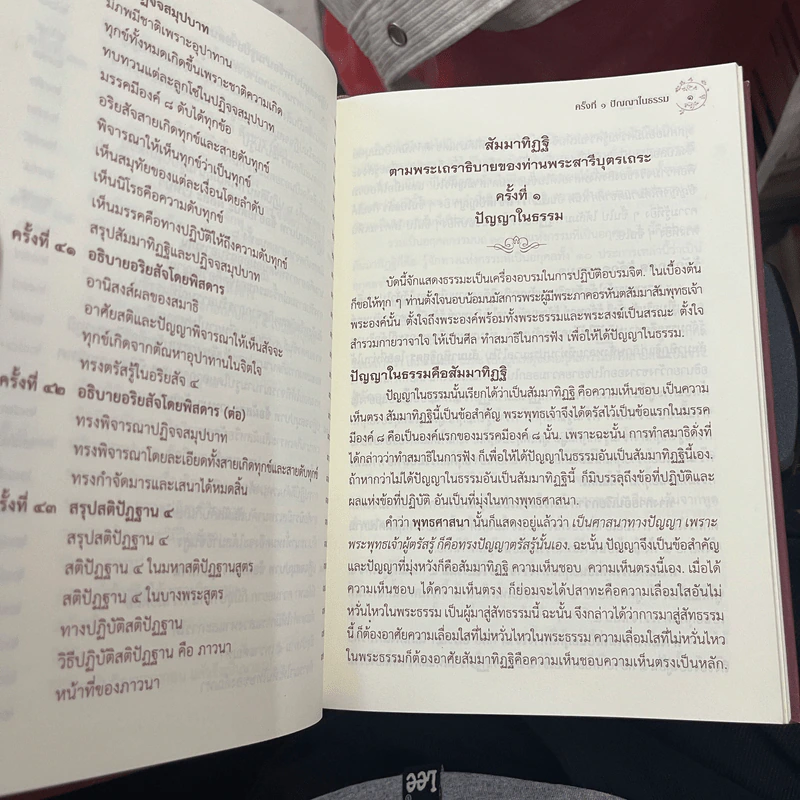 ปฏิจจสมุปบาท
มีภพมีชาติเพราะอุปาทาน
ทุกข์ทั้งหมดเกิดขึ้นเพราะชาติความเกิด
ทบทวนแต่ละลูกโซ่ในปฏิจจสมุปบาท
มรรคมีองค์ ๘ ดับได้ทุกข้อ
อริยสัจสายเกิดทุกข์และสายดับทุกข์
พิจารณาให้เห็นทุกข์ว่าเป็นทุกข์
เห็นสมุทัยของแต่ละเงื่อนโดยลำดับ
เห็นนิโรธคือความดับทุกข์
เห็นมรรคคือทางปฏิบัติให้ถึงความดับทุกข์
สรุปสัมมาทิฏฐิและปฏิจจสมุปบาท
ครั้งที่ ๔๑ อธิบายอริยสัจโดยพิสดาร
อานิสงส์ผลของสมาธิ
อาศัยสติและปัญญาพิจารณาให้เห็นสัจจะ
ทุกข์เกิดจากตัณหาอุปาทานในจิตใจ
ทรงตรัสรู้ในอริยสัจ ๔
ครั้งที่ ๔๒ อธิบายอริยสัจโดยพิสดาร (ต่อ)
ทรงพิจารณาปฏิจจสมุปบาท
ทรงพิจารณาโดยละเอียดทั้งสายเกิดทุกข์และสายดับทุกข์
ทรงกำจัดมารและเสนาได้หมดสิ้น
ครั้งที่ ๔๓ สรุปสติปัฏฐาน ๔
สรุปสติปัฏฐาน ๔
สติปัฏฐาน ๔ ในมหาสติปัฏฐานสูตร
สติปัฏฐาน ๔ ในบางพระสูตร
ทางปฏิบัติสติปัฏฐาน
วิธีปฏิบัติสติปัฏฐาน คือ ภาวนา
หน้าที่ของภาวนา
ครั้งที่ ๑ ปัญญาในธรรม ๑
สัมมาทิฏฐิ
ตามพระเถราธิบายของท่านพระสารีบุตรเถระ
ครั้งที่ ๑
ปัญญาในธรรม
บัดนี้จักแสดงธรรมะเป็นเครื่องอบรมในการปฏิบัติอบรมจิต. ในเบื้องต้น
ก็ขอให้ทุก ๆ ท่านตั้งใจนอบน้อมนมัสการพระผู้มีพระภาคอรหันตสัมมาสัมพุทธเจ้า
พระองค์นั้น ตั้งใจถึงพระองค์พร้อมทั้งพระธรรมและพระสงฆ์เป็นสรณะ ตั้งใจ
สำรวมกายวาจาใจ ให้เป็นศีล ทำสมาธิในการฟัง เพื่อให้ได้ปัญญาในธรรม.
ปัญญาในธรรมคือสัมมาทิฏฐิ
ปัญญาในธรรมนั้นเรียกได้ว่าเป็นสัมมาทิฏฐิ คือความเห็นชอบ เป็นความ
เห็นตรง สัมมาทิฏฐินี้เป็นข้อสำคัญ พระพุทธเจ้าจึงได้ตรัสไว้เป็นข้อแรกในมรรค
มีองค์ ๘ คือเป็นองค์แรกของมรรคมีองค์ ๘ นั้น. เพราะฉะนั้น การทำสมาธิดั่งที่
ได้กล่าวว่าทำสมาธิในการฟัง ก็เพื่อให้ได้ปัญญาในธรรมอันเป็นสัมมาทิฏฐินี้เอง.
ถ้าหากว่าไม่ได้ปัญญาในธรรมอันเป็นสัมมาทิฏฐินี้ ก็มิบรรลุถึงข้อที่ปฏิบัติและ
ผลแห่งข้อที่ปฏิบัติ อันเป็นที่มุ่งในทางพุทธศาสนา.
คำว่า พุทธศาสนา นั้นก็แสดงอยู่แล้วว่า เป็นศาสนาทางปัญญา เพราะ
พระพุทธเจ้าผู้ตรัสรู้ ก็คือทรงปัญญาตรัสรู้นั้นเอง. ฉะนั้น ปัญญาจึงเป็นข้อสำคัญ
และปัญญาที่มุ่งหวังก็คือสัมมาทิฏฐิ ความเห็นชอบ ความเห็นตรงนี้เอง. เมื่อได้
ความเห็นชอบ ได้ความเห็นตรง ก็ย่อมจะได้ปสาทะคือความเลื่อมใสอันไม่
หวั่นไหวในพระธรรม เป็นผู้มาสู่สัทธรรมนี้ ฉะนั้น จึงกล่าวได้ว่าการมาสู่สัทธรรม
นี้ ก็ต้องอาศัยความเลื่อมใสที่ไม่หวั่นไหวในพระธรรม ความเลื่อมใสที่ไม่หวั่นไหว
ในพระธรรมก็ต้องอาศัยสัมมาทิฏฐิคือความเห็นชอบความเห็นตรงเป็นหลัก.
Lee